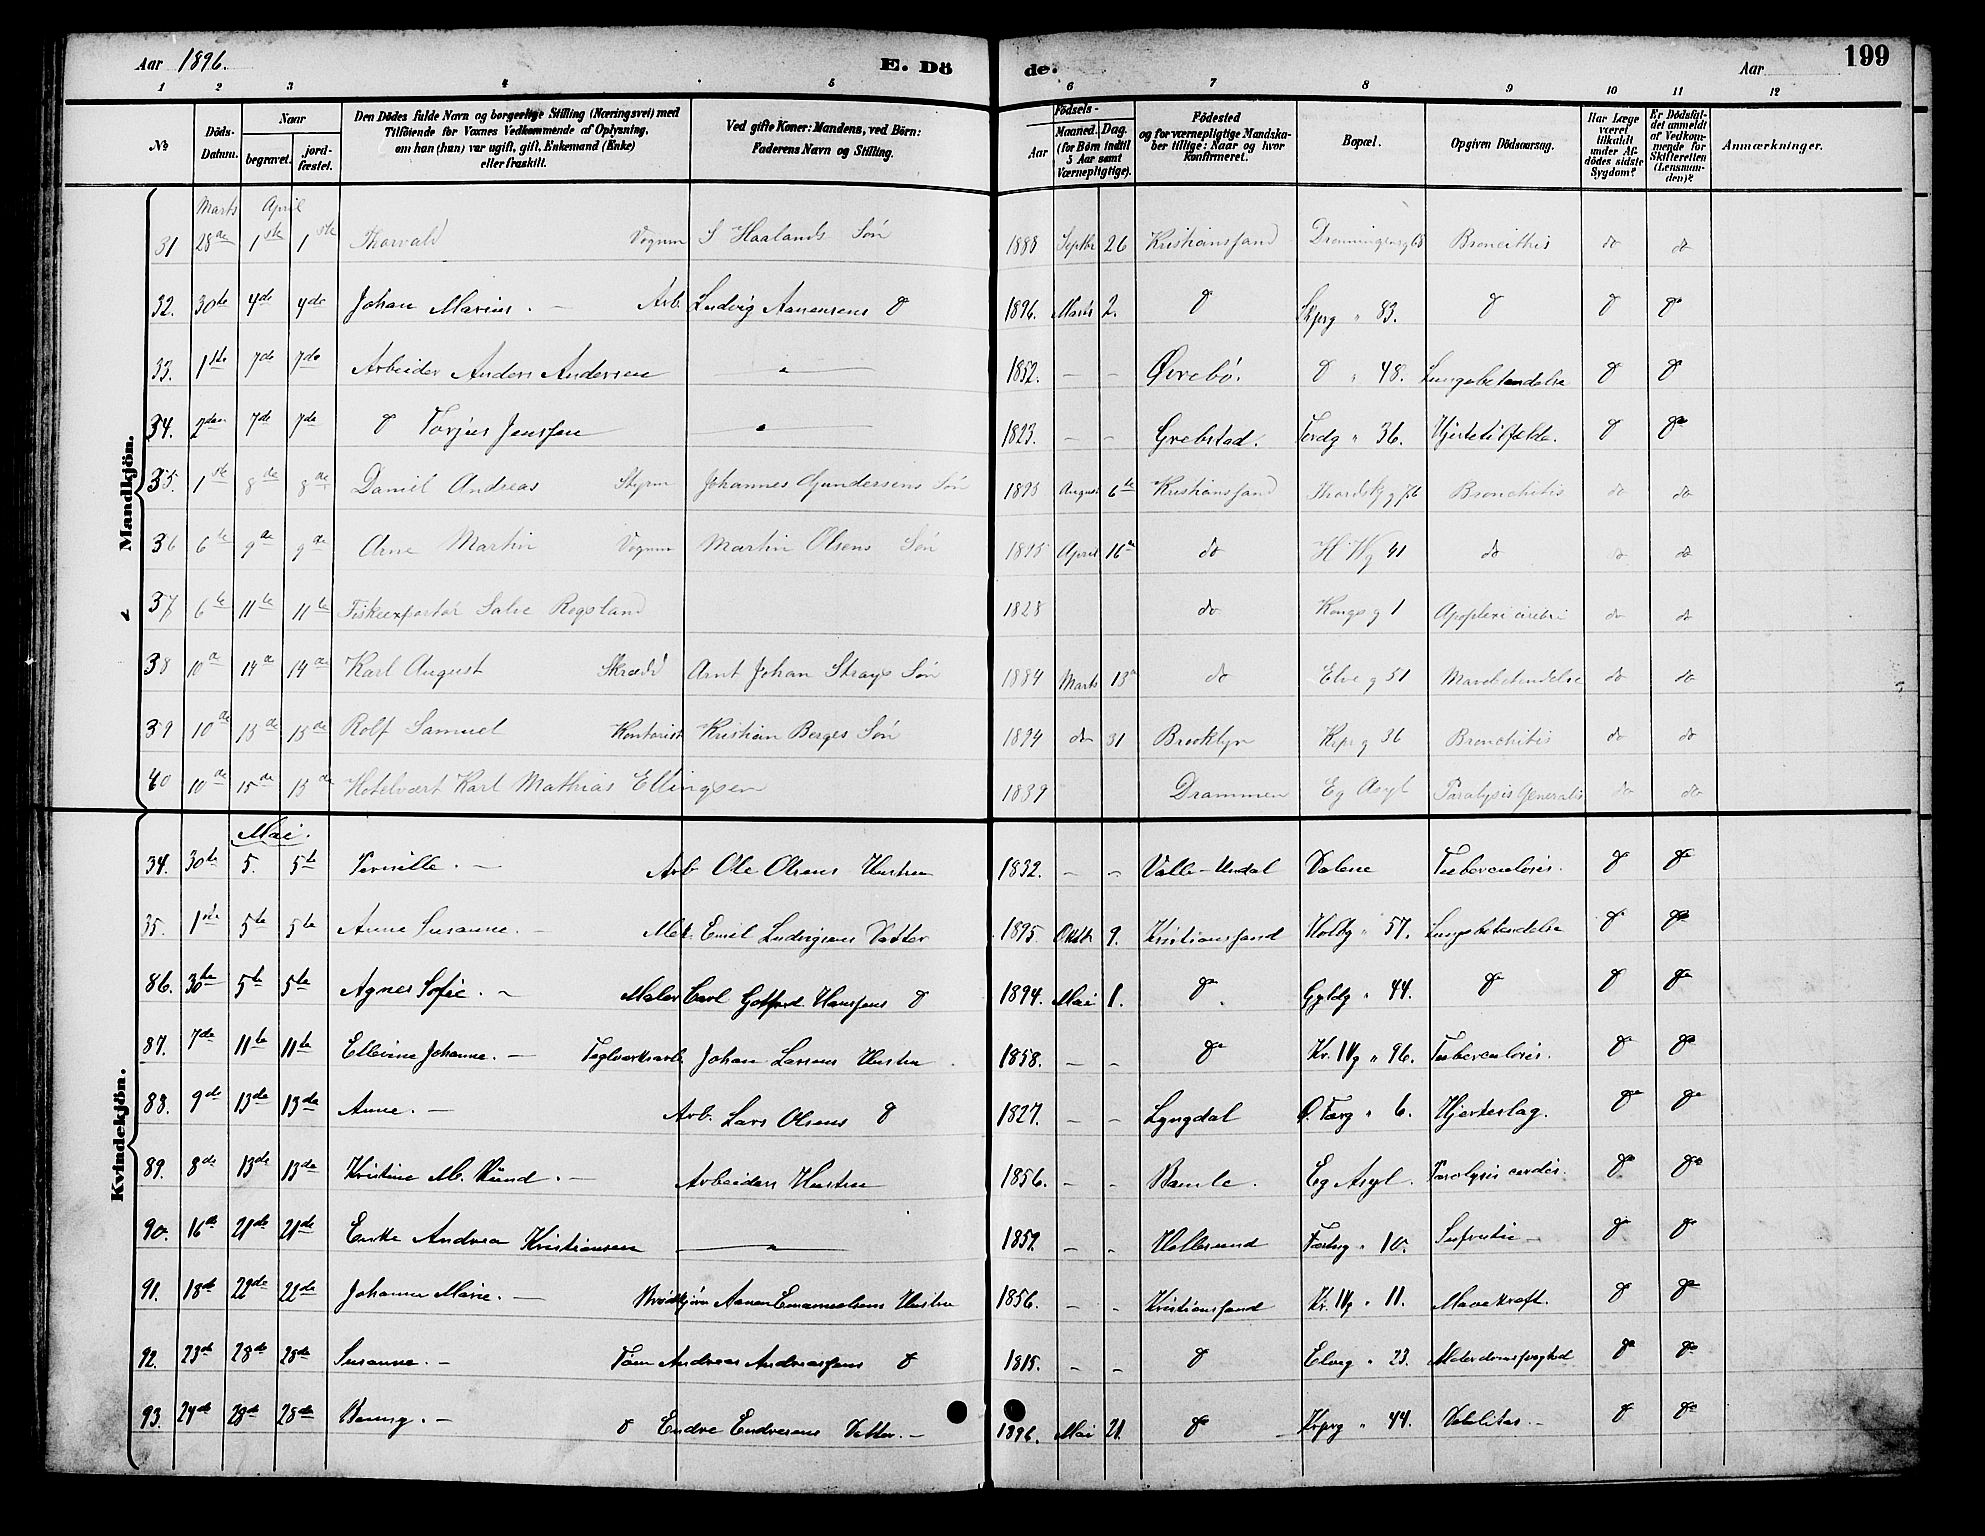 Aar 1896. E. Dö de. Aar 199
1 2 3 4 5 6 7 8 9 10 11 12
№ Döds-Datum. Naar begravet. jord-fæstet. Den Dödes fulde Navn og borgerlige Stilling (Næringsvei) med Tilföiende for Voxnes Vedkommende af Oplysning, om han (hun) var ugift, gift, Enkemand (Enke) eller fraskilt. Ved gifte Koner: Mandens, ved Børn: Faderens Navn og Stilling. Födsels- Aar Maaned. Dag. (for Börn indtil 5 Aar samt Værnepligtige). Födested og for værnepligtige Mandskaber tillige: Naar og hvor konfirmeret. Bopæl. Opgiven Dödsaarsag. Har Læge været tilkaldt under Afdödes sidste Sygdom? Er Dödsfaldet anmeldt af Vedkommende for Skifteretten (Lensmanden)? Anmærkninger.
Mandkjön.
Marts April
31 28de 1ste 1ste Thorvald Vognm S Haalands Søn 1888 Septbr 26 Kristianssand Dronningensg Broncithis do do
32. 30te 4de 4de Johan Marius. — Arb. Ludvig Aanensens do 1896. Marts 2. do 83. do do do
33. 1ste 7de 7de Arbeider Anders Andersen — " — 1852. — — Øvrebö. do " 48. Lungebetændelse do do
34. 2den 7de 7de do Torjus Jensen — " — 1823. — — Grebstad. Tordg " 36. Hjertetilfælde. do do
35. 1ste 8de 8de Daniel Andreas Styrm Johannes Gundersens Søn 1895 August 6te Kristianssand Bronchitis do do
36 6te 9de 9de Arne Martin Vognm Martin Olsens Søn 1895 April 16de do H Wg 41 do do do
37 6te 11te 11te Fiskeexportør Salve Rogstand 1828 do Kongs g 1 Apoplexi cirebri do do
38 10de 14de 14de Karl August Skrædd Arnt Johan Strays Søn 1884 Marts 13de do Elve g 51 Mavebetændelse do do
39 10de 15de 15de Rolf Samuel Kontorist Kristian Berges Søn 1894 do 31 Brooklyn Kipr g 36 Bronchitis do do
40 10de 15de 15de Hotelvært Karl Mathias Ellingsen 1839 Drammen Eg Asyl Paralysis Generalis do do
Kvindekjön.
Mai.
34. 30te 5. 5te Pernille. — Arb. Ole Olsens Hustru 1832. — — Valle-Undal Dalene Tuberculosis. do do
35. 1ste 5te 5te Anne Susanne. — Mek. Emil Ludvigsens Datter 1895. Oktbr 9. Kristianssand Holbg " 57. Lungebetændelse do do
86. 30te 5te 5te Agnes Sofie. — Maler Carl Gotfred Hanssens do 1894. Mai 1. do Gyldg " 44. do do do
87. 7de 11te 11te Ellevine Johanne. — Teglværksarb. Johan Larsens Hustru 1858. — — do Kr. IVg " 96. Tuberculosis. do do
88. 9de 13de 13de Anne. — Arb. Lars Olsens do 1827. — — Lyngdal Ø. " 6. Hjerteslag. do do
89. 8de 13de 13de Kristine M. — Arbeiders Hustru 1856. — — Bamle. Eg Asyl. Paralysis cordis. do do
90. 16de 21de 21de Enke Andrea Kristiansen — " — 1859. — — Hellesund " 10. do do
91. 18de 22de 22de Johanne Marie. — Aanen Emanuelsens Hustru 1856. — — Kristianssand Kr. IVg " 11. Mavekræft. do do
92. 23de 28de 28de Susanne. — Tøm Andreas Andreassens do 1815. — — do Elveg " 23. Alderdomssvaghed do do
93. 24de 28de 28de — do Endre Endresens Datter. — 1896. Mai 21. do " 44. Debilitas. — do do